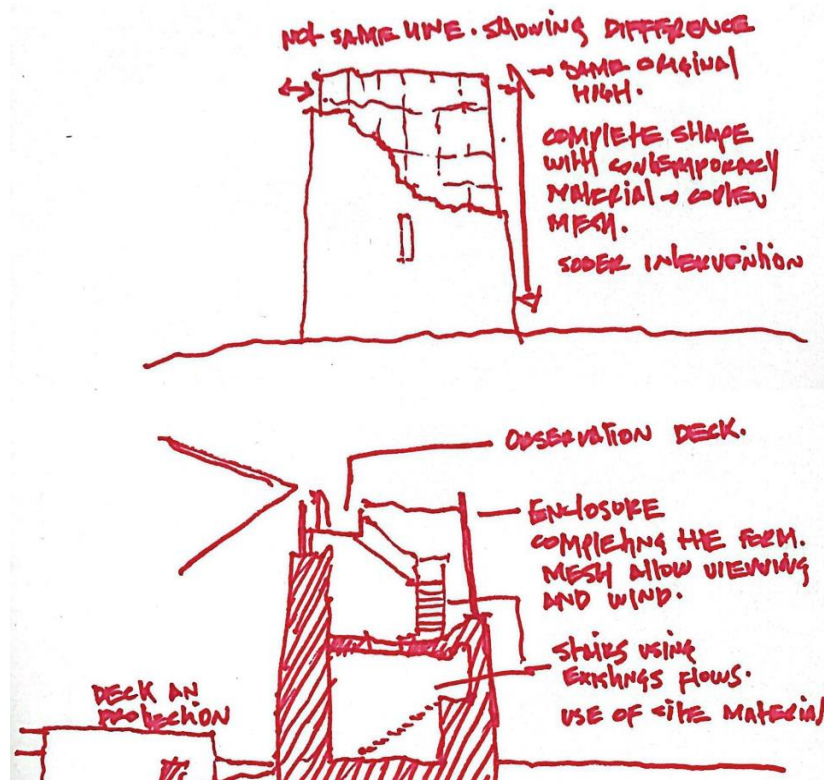 NOT SAME LINE. SHOWING DIFFERENCE
→ SAME ORIGINAL
HIGH.
COMPLETE SHAPE
WITH CONTEMPORARY
MATERIAL → CORTEN
MESH.
SOBER INTERVENTION
OBSERVATION DECK.
ENCLOSURE
COMPLETING THE FORM.
MESH ALLOW VIEWING
AND WIND.
STAIRS USING
EXISTINGS FLOWS.
USE OF SITE MATERIAL
DECK AN
PROTECTION